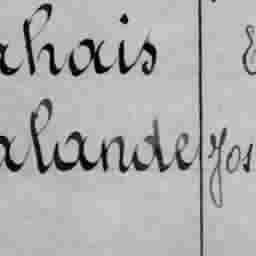 ahais E
alande Jos